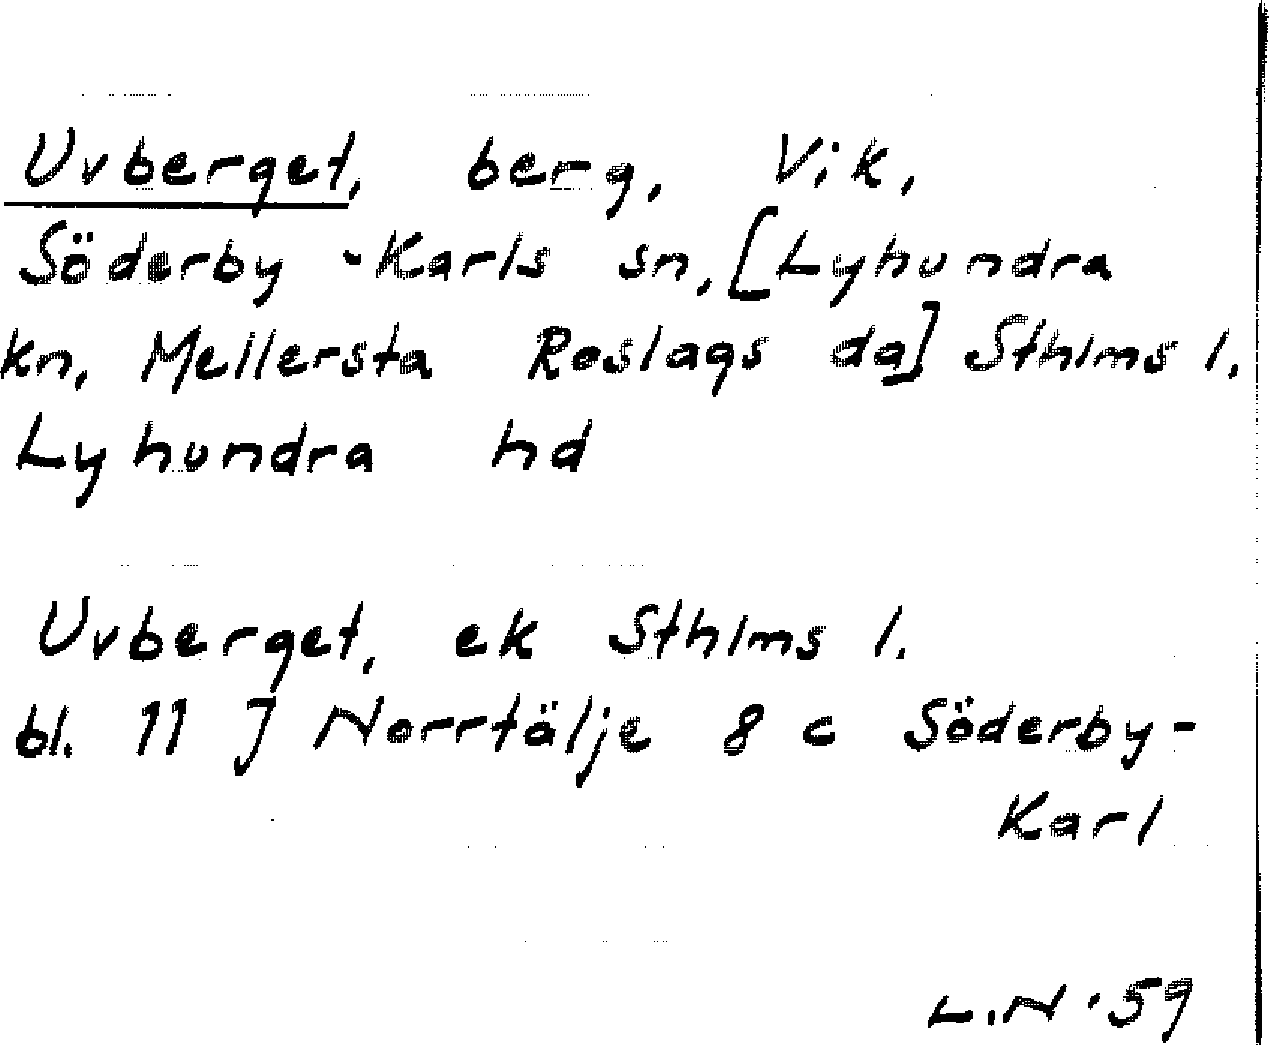 Uvberget, berg, Vik,
Söderby-Karls sn, [Lyhundra
kn, Mellersta Roslags da] Sthlms l.
Lyhundra hd
Uvberget, ek Sthlms l.
bl. 11 J Norrtälje 8 c Söderby-
Karl
L.N. 59